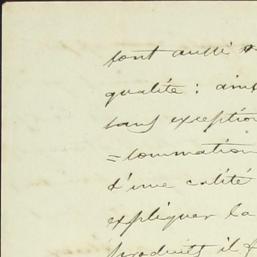 font aussi
qualité : ain
sans exception
=sommation
d'une calité
expliquer la
produits il f